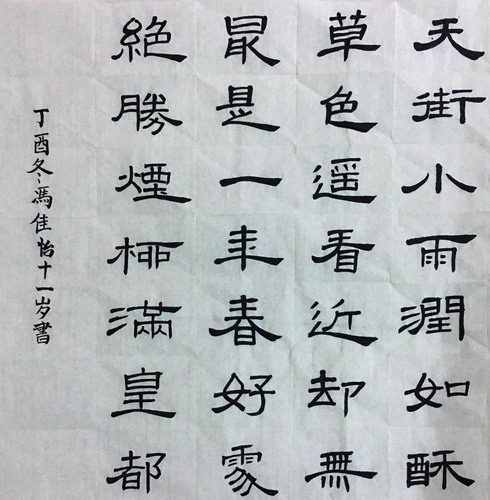 天街小雨潤如酥
草色遥看近却無
最是一年春好處
絕勝煙柳滿皇都
丁酉冬馮佳怡十一岁書